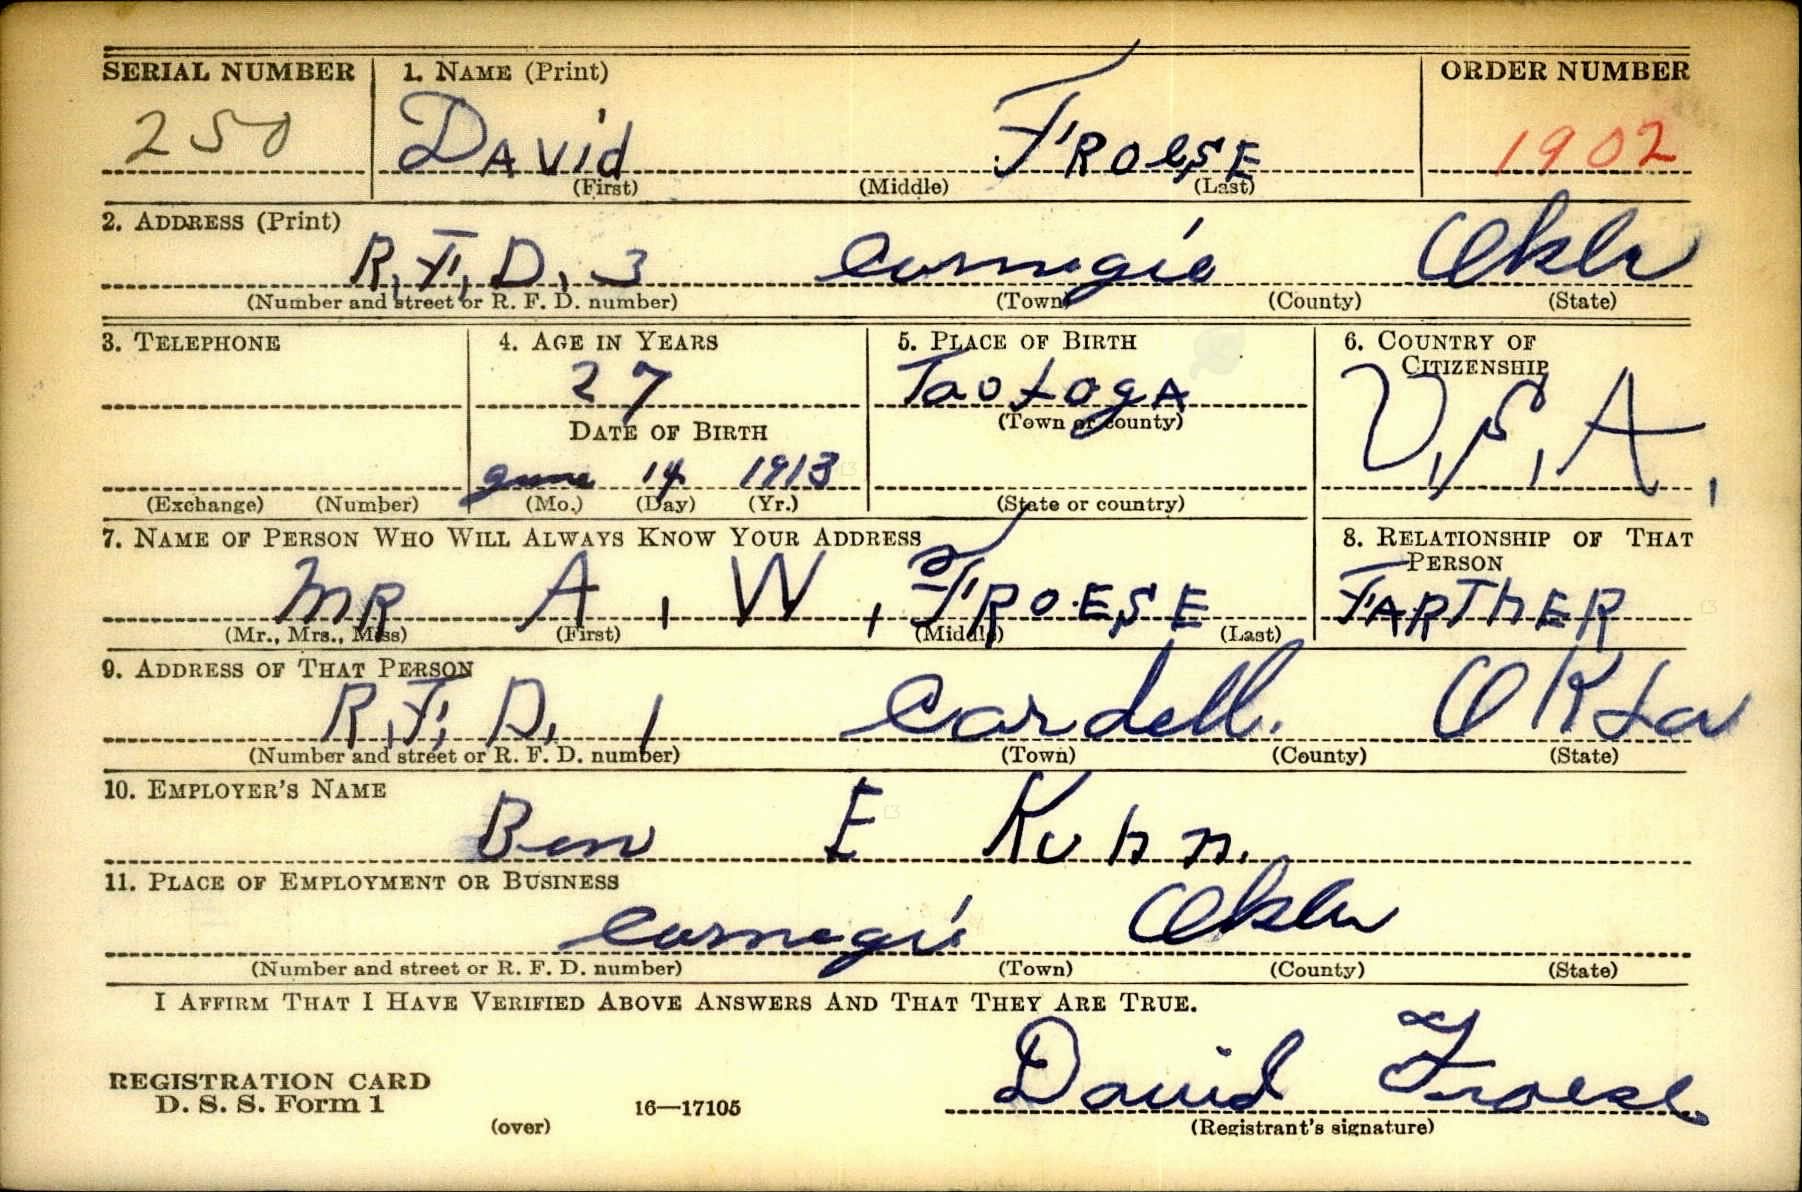 SERIAL NUMBER 1. NAME (Print) ORDER NUMBER
250 DAVid FROeSE 1902
(First) (Middle) (Last)
2. ADDRESS (Print)
R.F.D. 3 Carnegie Okla
(Number and street or R. F. D. number) (Town) (County) (State)
3. TELEPHONE 4. AGE IN YEARS 5. PLACE OF BIRTH 6. COUNTRY OF CITIZENSHIP
27 U.S.A.
DATE OF BIRTH (Town or county)
June 14 1913
(Exchange) (Number) (Mo.) (Day) (Yr.) (State or country)
7. NAME OF PERSON WHO WILL ALWAYS KNOW YOUR ADDRESS 8. RELATIONSHIP OF THAT PERSON
MR A. W. FROESE FARThER
(Mr., Mrs., Miss) (First) (Middle) (Last)
9. ADDRESS OF THAT PERSON
R.F.D. 1 Cordell. OKLa
(Number and street or R. F. D. number) (Town) (County) (State)
10. EMPLOYER'S NAME
Ben E Kuhn.
11. PLACE OF EMPLOYMENT OR BUSINESS
Carnegie Okla
(Number and street or R. F. D. number) (Town) (County) (State)
I AFFIRM THAT I HAVE VERIFIED ABOVE ANSWERS AND THAT THEY ARE TRUE.
David Froese
REGISTRATION CARD
D. S. S. Form 1 16—17105
(over) (Registrant's signature)